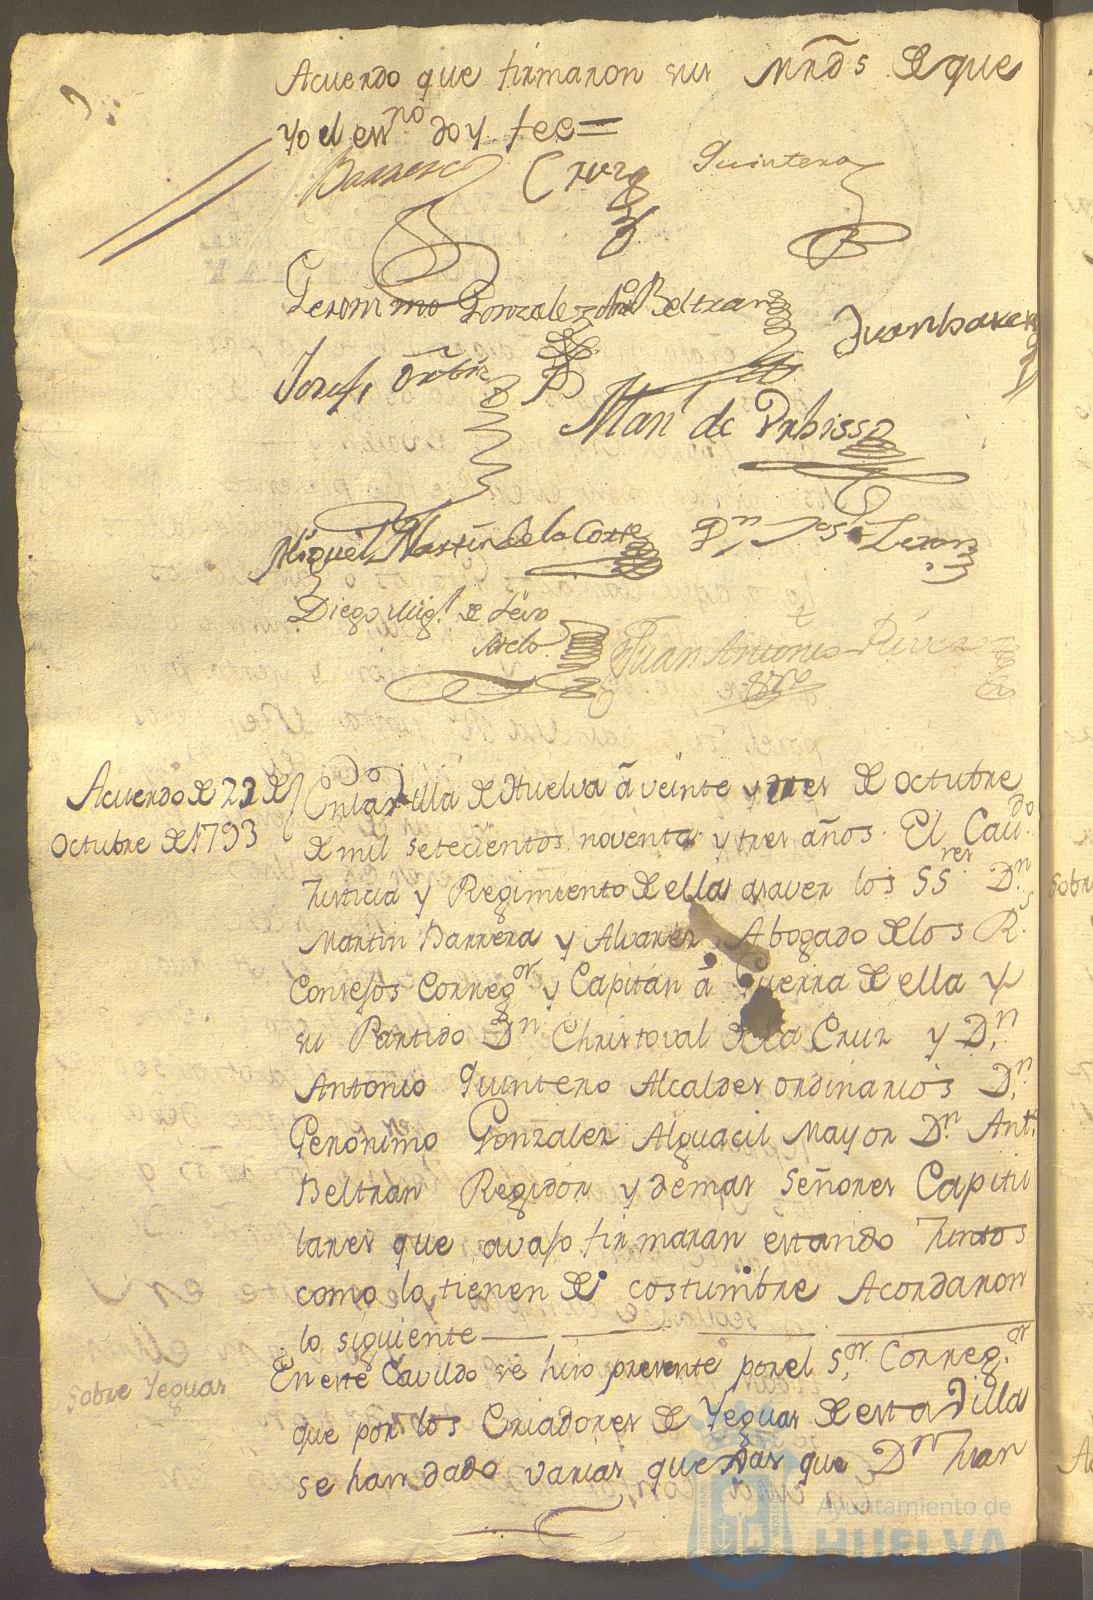 Acuerdo que firmaron sus Mrds. de que
yo el essno doy fee=
Barrera Cruz Quintero
Geronimo Gonzalez Anto Beltran
Juan
Josef Ortiz
Man de
Miguel Martin de la Corte Dn Josf
Diego Migl de
Juan Antonio Rivera
Acuerdo de 23 de
Octubre de 1793
En la Villa de Huelva á veinte y tres de Octubre
de mil setecientos noventa y tres años. El Cavdo.
Justicia y Regimiento de ella asaver los SSres Dn.
Martin Barrera y Alvarez Abogado delos Rs.
Consejos Corregor y Capitán á Guerra de ella y
su Partido Dn Christoval dela Cruz y Dn.
Antonio Quintero Alcaldes ordinarios Dn.
Gerónimo Gonzalez Alguacil Mayor Dn. Anto.
Beltran Regidor y demas Señores Capitu
lares que avajo firmaran estando Juntos
como lo tienen de costumbre Acordaron
lo siguiente
Sobre Yeguas
En este Cavildo se hizo presente por el Sor. Corregor.
que por los Criadores de Yeguas de esta Villa
se han dado varias quexas que Dn Juan
Ayuntamiento de
HUELVA
Sobre